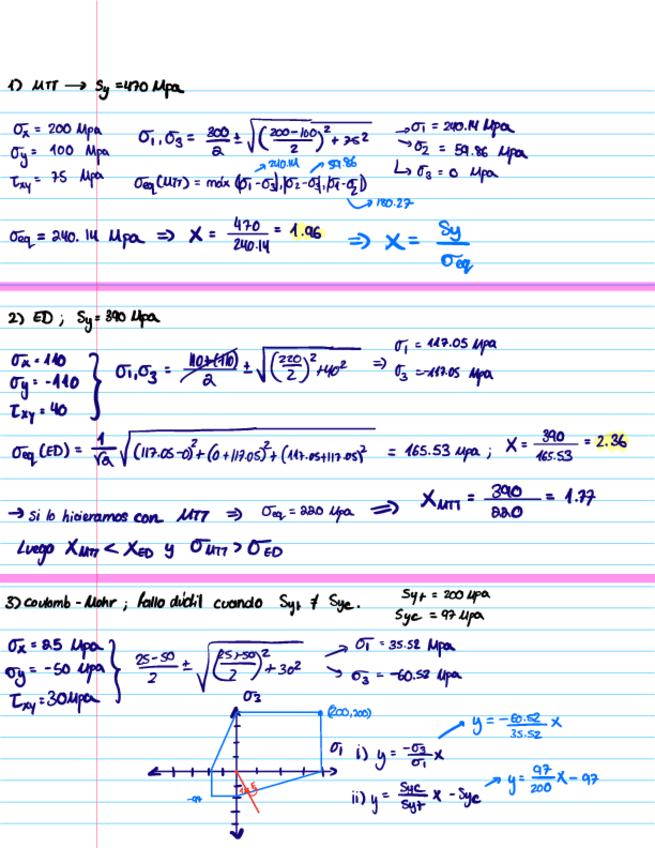 1) MTT → Sy = 470 Mpa
σx = 200 Mpa
σy = 100 Mpa
τxy = 75 Mpa
σ1, σ3 = 300/2 ± √((200-100/2)² + 75²)
→ σ1 = 240.14 Mpa
→ σ2 = 59.86 Mpa
↳ σ3 = 0 Mpa
→ 240.14 → 59.86
σeq (MTT) = máx (|σ1 - σ3|, |σ2 - σ3|, |σ1 - σ2|)
→ 180.27
σeq = 240.14 Mpa ⇒ X = 470/240.14 = 1.96 ⇒ X = Sy/σeq
2) ED ; Sy = 390 Mpa
σx = 110
σy = -110
τxy = 40
σ1, σ3 = 110+(-110)/2 ± √((220/2)² + 40²) ⇒
σ1 = 117.05 Mpa
σ3 = -117.05 Mpa
σeq (ED) = 1/√2 √((117.05-0)² + (0+117.05)² + (117.05+117.05)²) = 165.53 Mpa ; X = 390/165.53 = 2.36
→ si lo hicieramos con MTT ⇒ σeq = 220 Mpa ⇒ XMTT = 390/220 = 1.77
Luego XMTT < XED y σMTT > σED
3) Coulomb - Mohr ; fallo dúctil cuando Syt ≠ Syc.
Syt = 200 Mpa
Syc = 97 Mpa
σx = 25 Mpa
σy = -50 Mpa
τxy = 30 Mpa
25-50/2 ± √((25+50/2)² + 30²)
→ σ1 = 35.52 Mpa
→ σ3 = -60.52 Mpa
σ3
(200,200)
σ1
-97
i) y = -σ3/σ1 x → y = -60.52/35.52 x
ii) y = Syc/Syt x - Syc → y = 97/200 x - 97